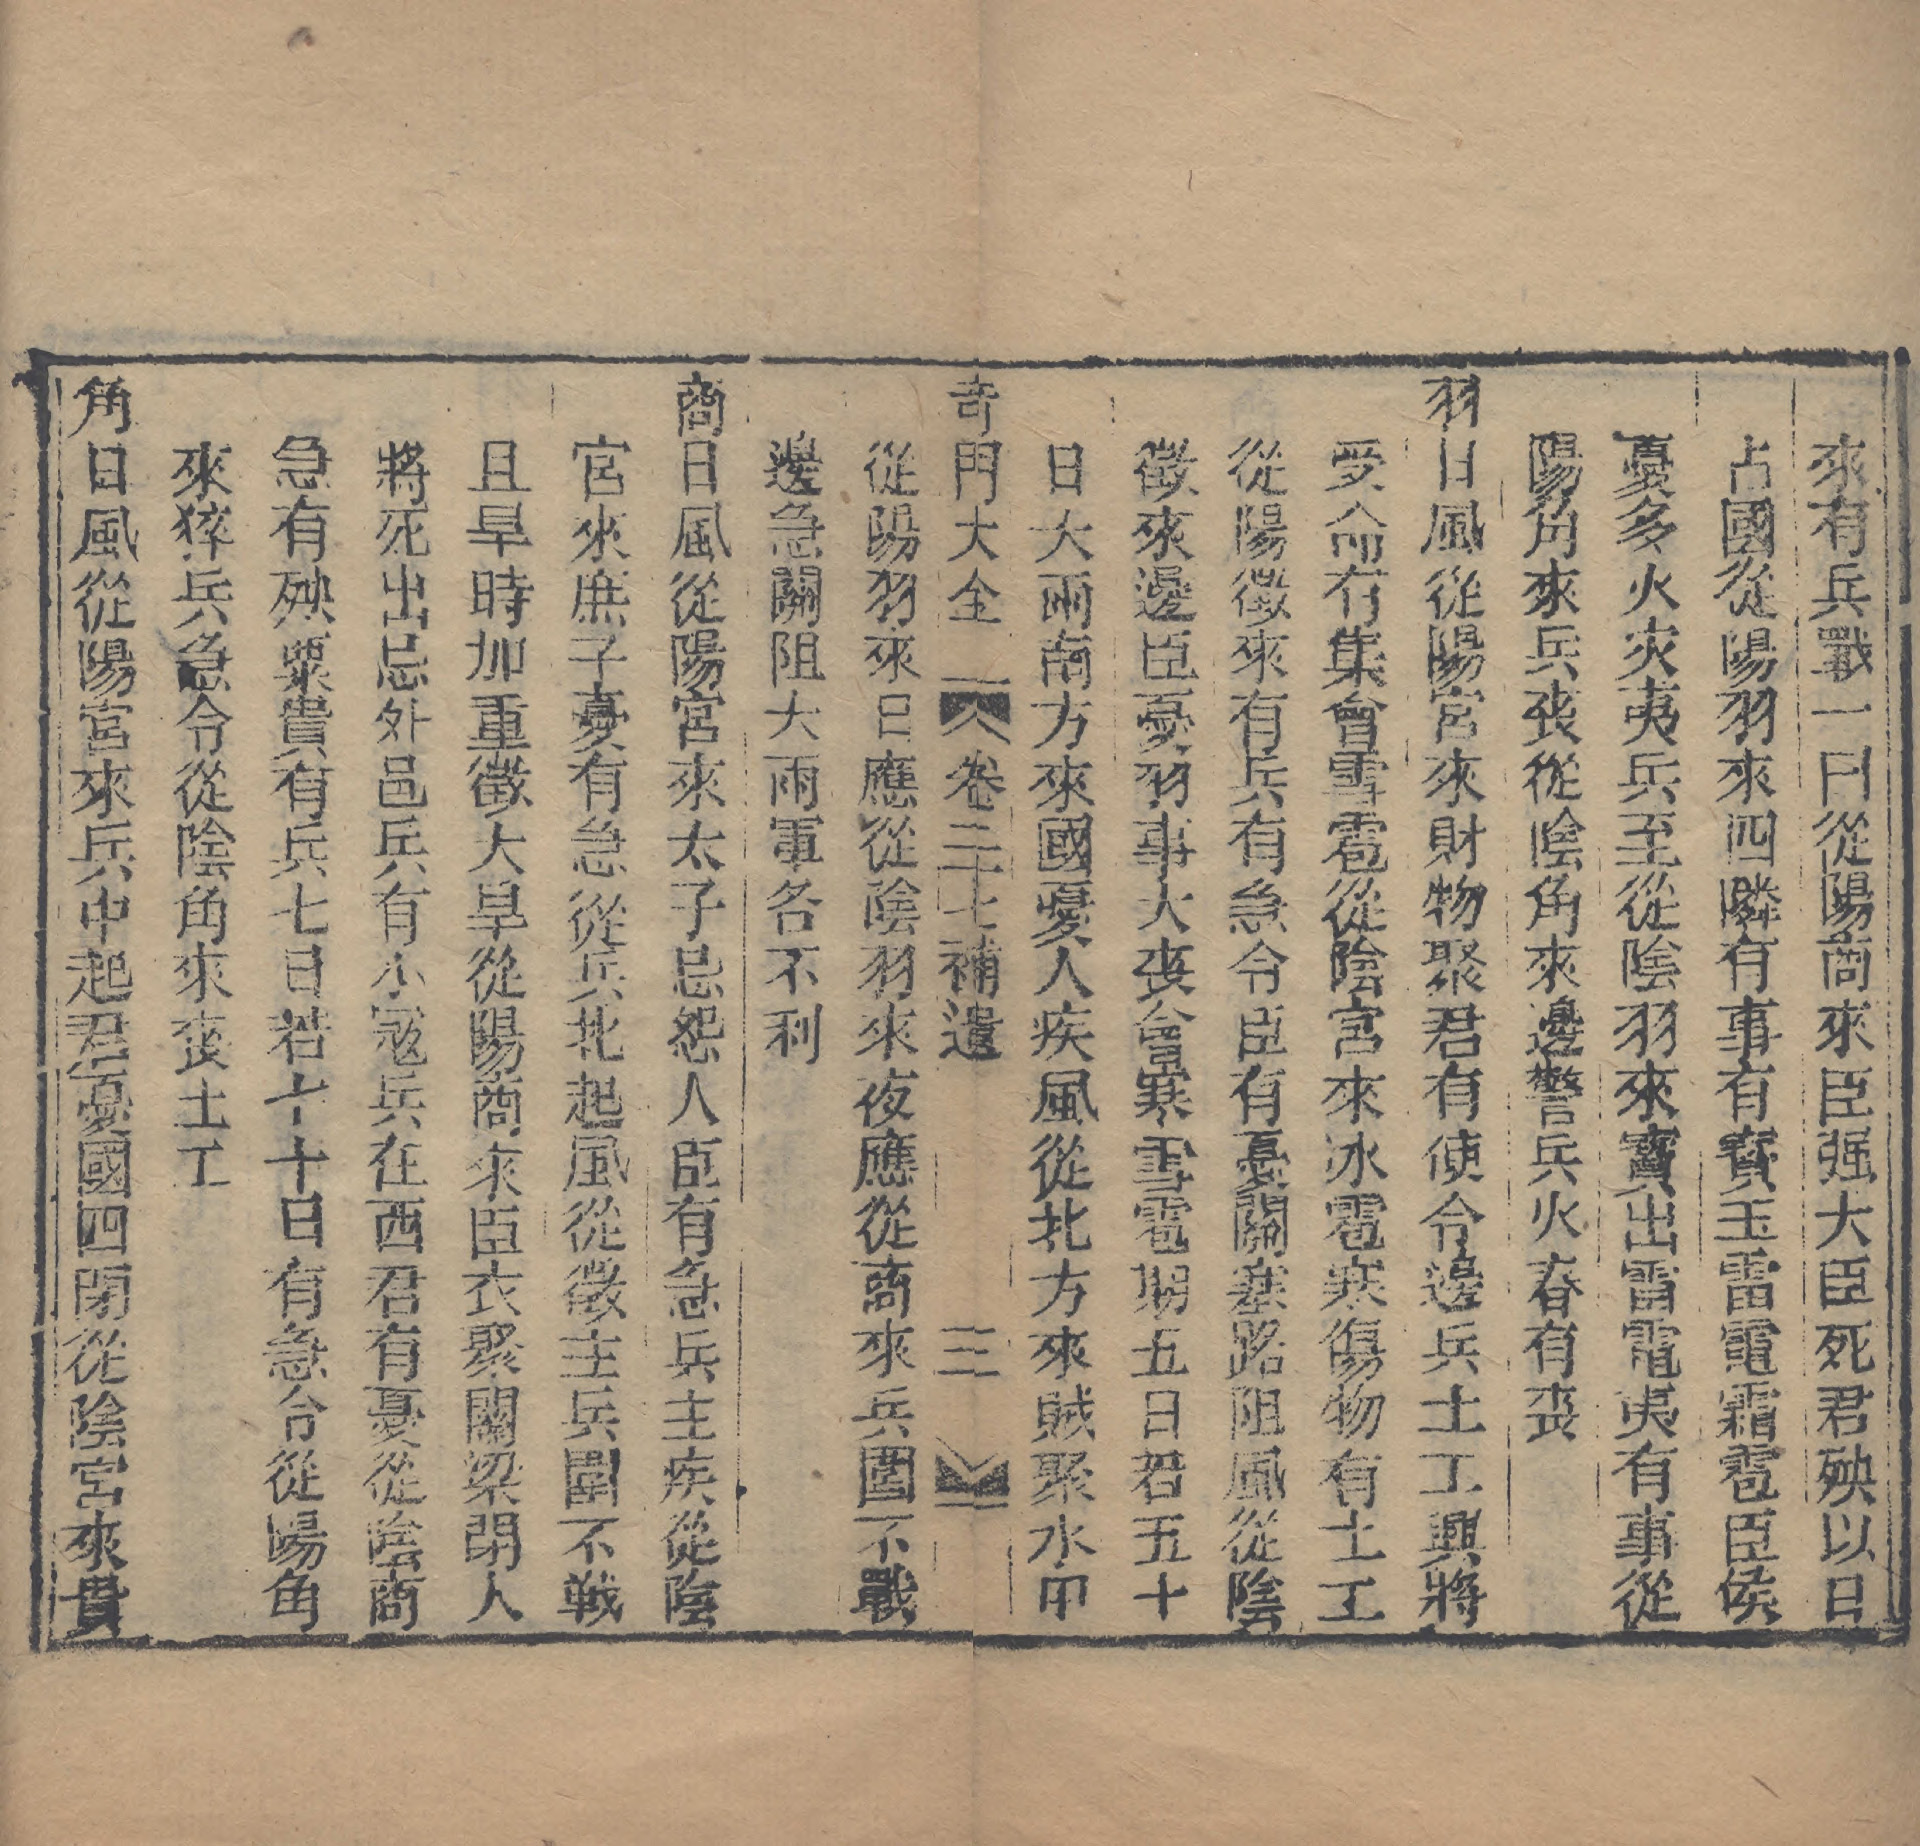 來有兵戰一曰從陽商來臣强大臣死君殃以日
占國從陽羽來四隣有事有寳玉雷電霜雹臣侯
憂多火灾夷兵至從陰羽來寳出雷電夷有事從
陽角來兵丧從陰角來邊警兵火春有丧
羽日風從陽宮來財物聚君有使令邊兵土工興將
受命有集會雪雹從陰宮來冰雹寒傷物有土工
從陽徵來有兵有急令臣有憂關塞路阻風從陰
徵來邊臣憂羽事大丧會寒雪雹期五日若五十
日大雨南方來國憂人疾風從北方來賊聚水甲
奇門大全 卷二十七補遺 三
從陽羽來日應從陰羽來夜應從商來兵圍不戰
邊急關阻大雨軍各不利
商日風從陽宮來太子忌怨人臣有急兵主疾從陰
宮來庶子憂有急從兵北起風從徵主兵圍不戦
且旱時加重徵大旱從陽商來臣衣聚關梁閉人
將死出忌外邑兵有小冦兵在西君有憂從陰商
急有殃粟貴有兵七日若七十日有急令從陽角
來猝兵急令從陰角來丧土工
角日風從陽宮來兵中起君憂國四閉從陰宮來貫